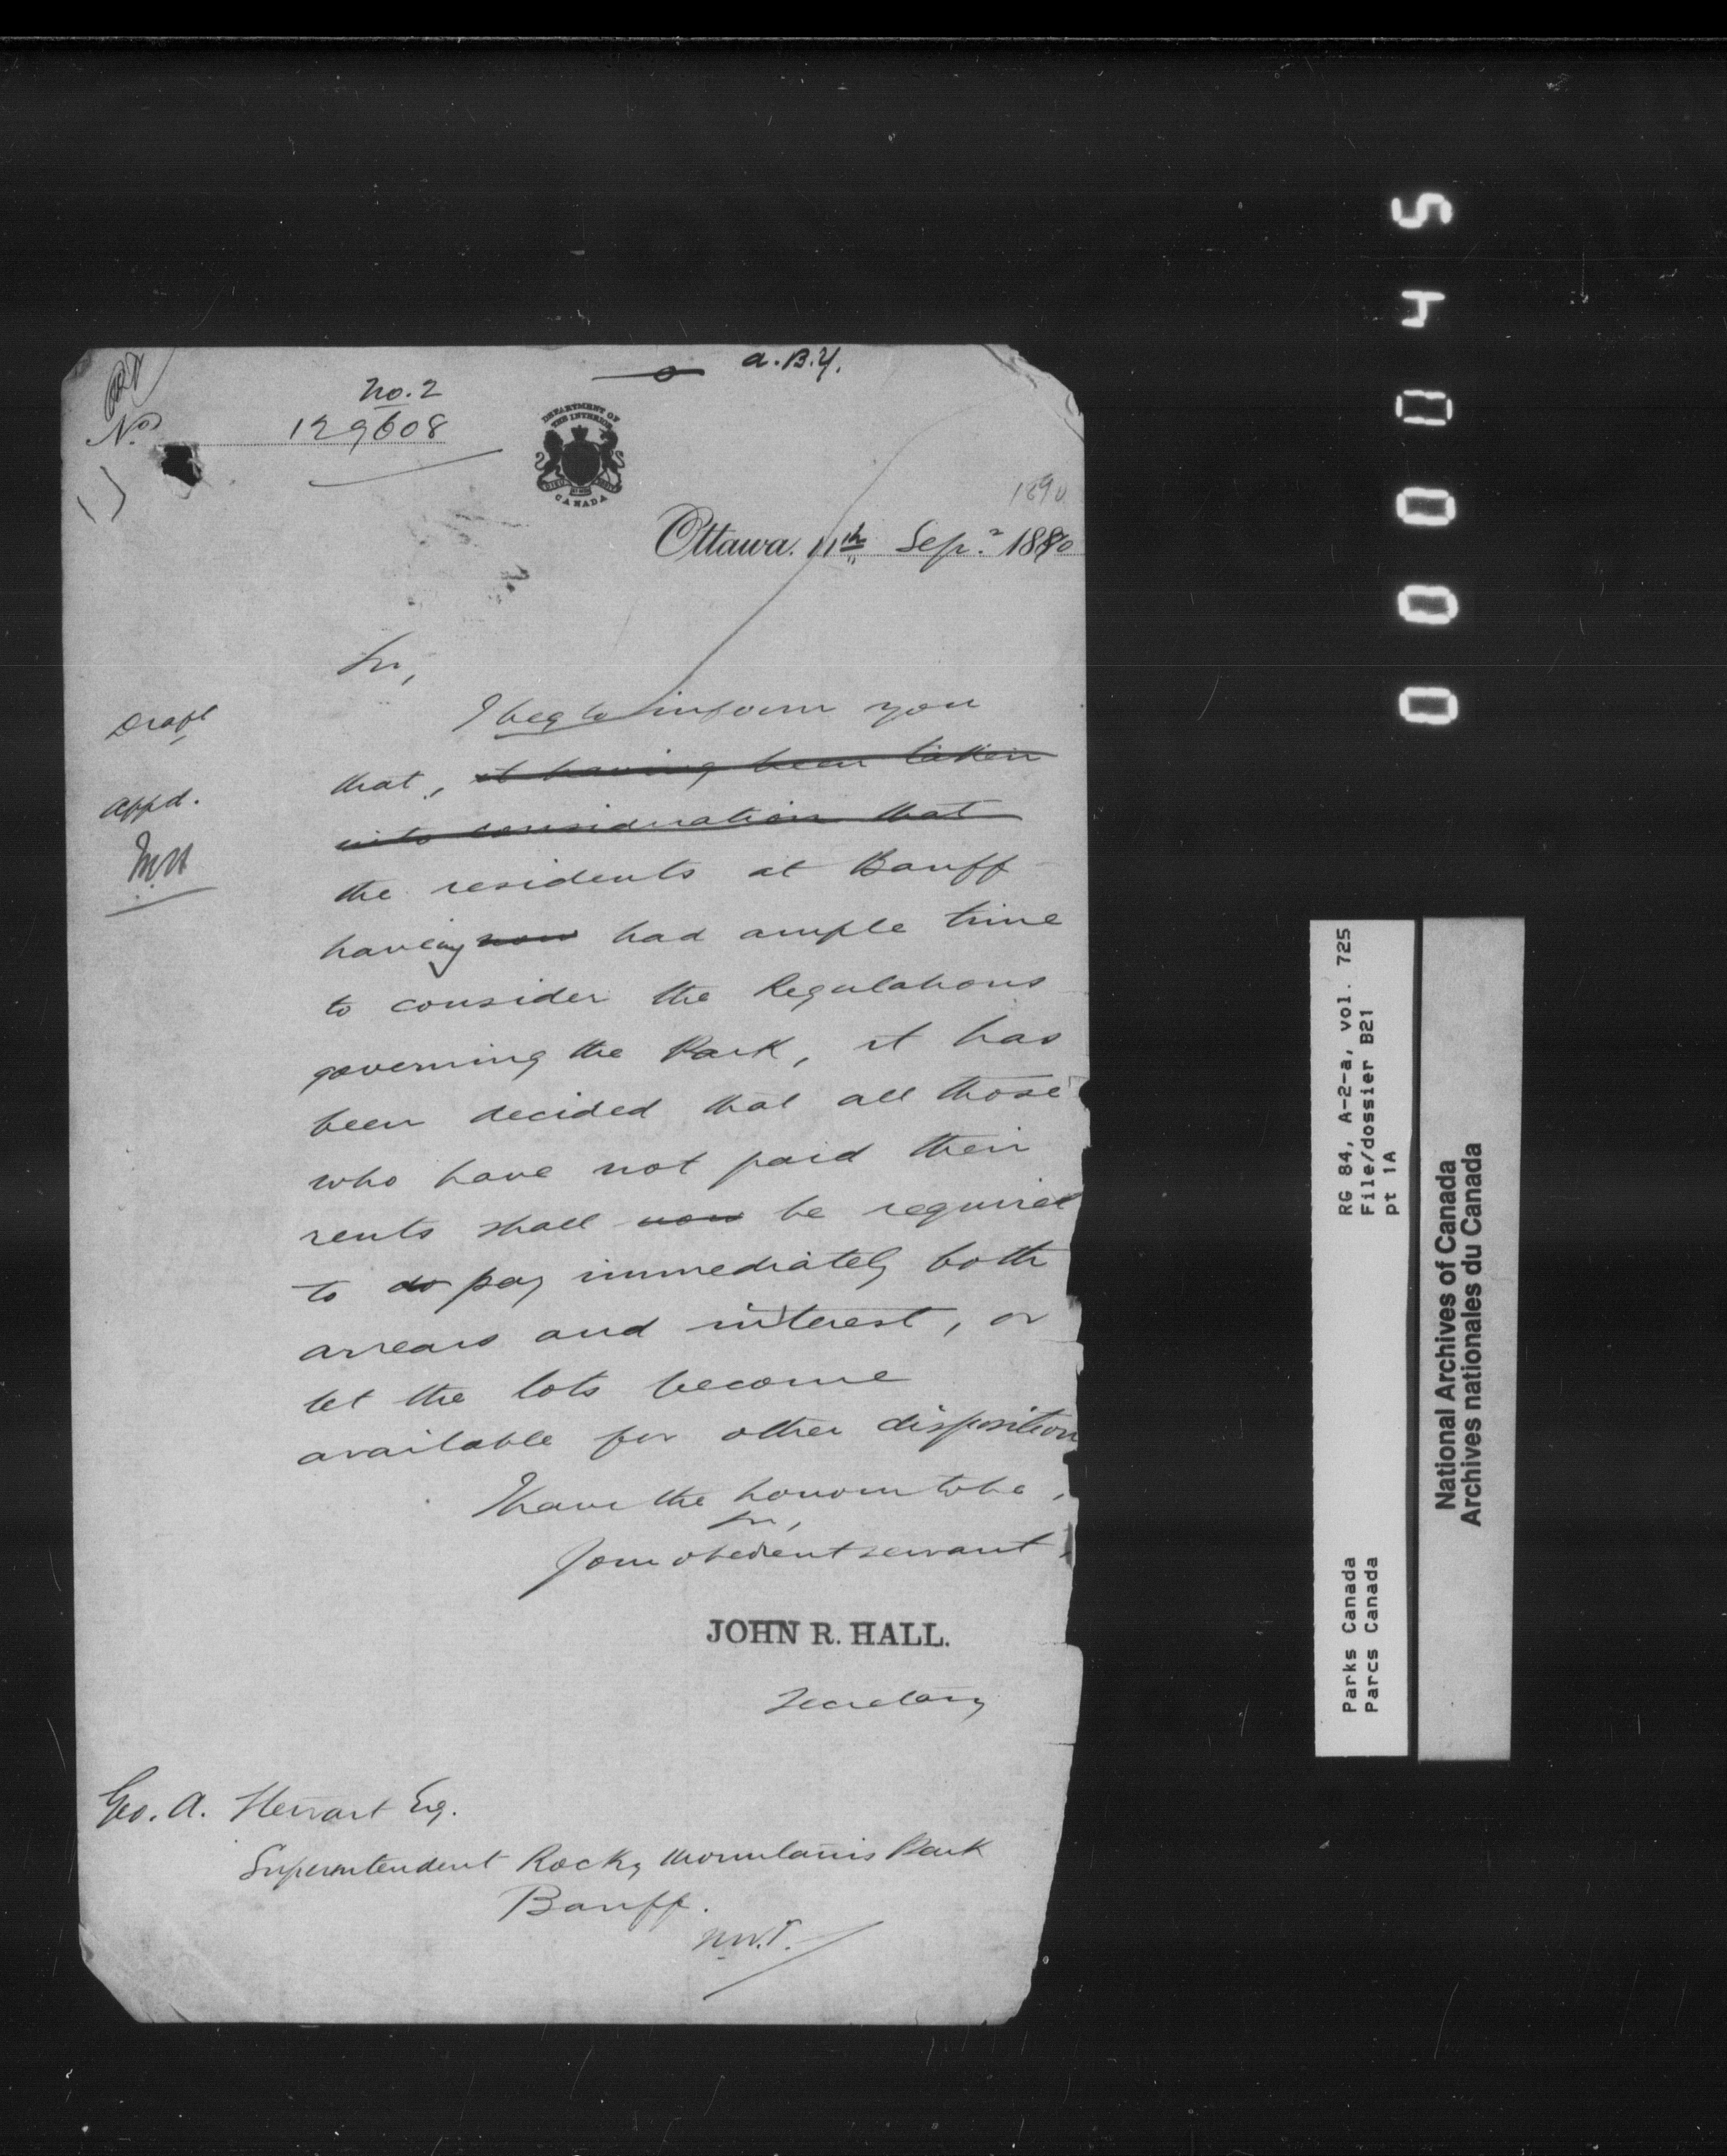 a.B.Y.
No. 2
No. 129608
DEPARTMENT OF
THE INTERIOR
CANADA
1890
Ottawa. 11th Sepr. 1890
Sir,
Draft
I beg to inform you
that, it having been taken
Appd.
into consideration that
the residents at Banff
having now had ample time
to consider the Regulations
governing the Park, it has
been decided that all those
who have not paid their
rents shall now be required
to do pay immediately both
arrears and interest, or
let the lots become
available for other disposition
I have the honour to be,
Sir,
Your obedient servant,
JOHN R. HALL.
Secretary
Geo. A. Stewart Esq.
Superintendent Rocky Mountains Park
Banff.
N.W.T.
00045
RG 84, A-2-a, vol. 725
File/dossier B21
pt 1A
Parks Canada
Parcs Canada
National Archives of Canada
Archives nationales du Canada